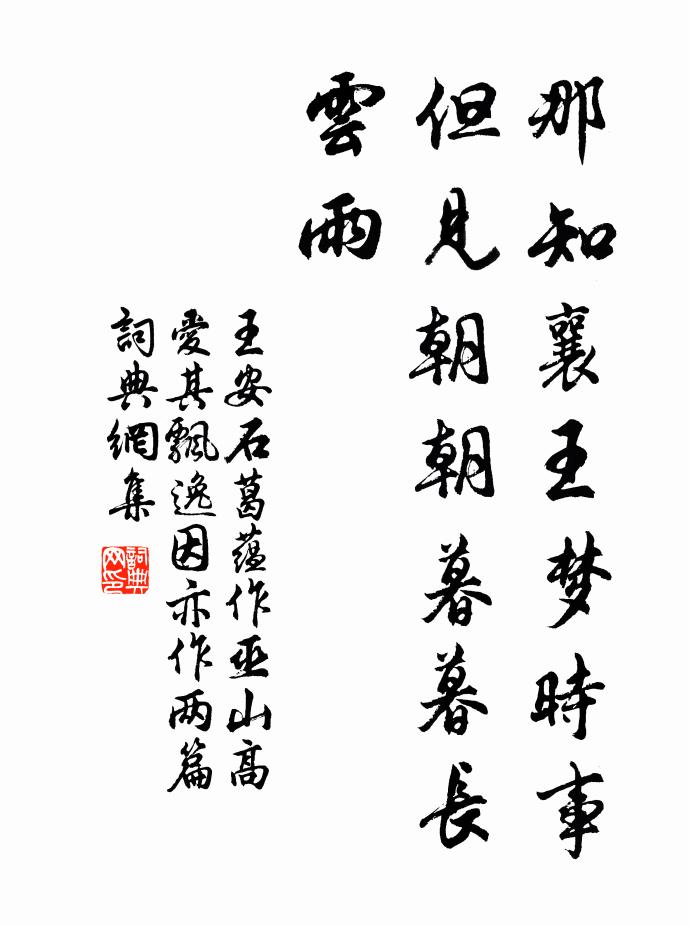 那知襄王梦時事
但見朝朝暮暮長
雲雨
王安石葛蕴作巫山高
愛其飄逸因亦作两篇
詞典網集
詞典网印